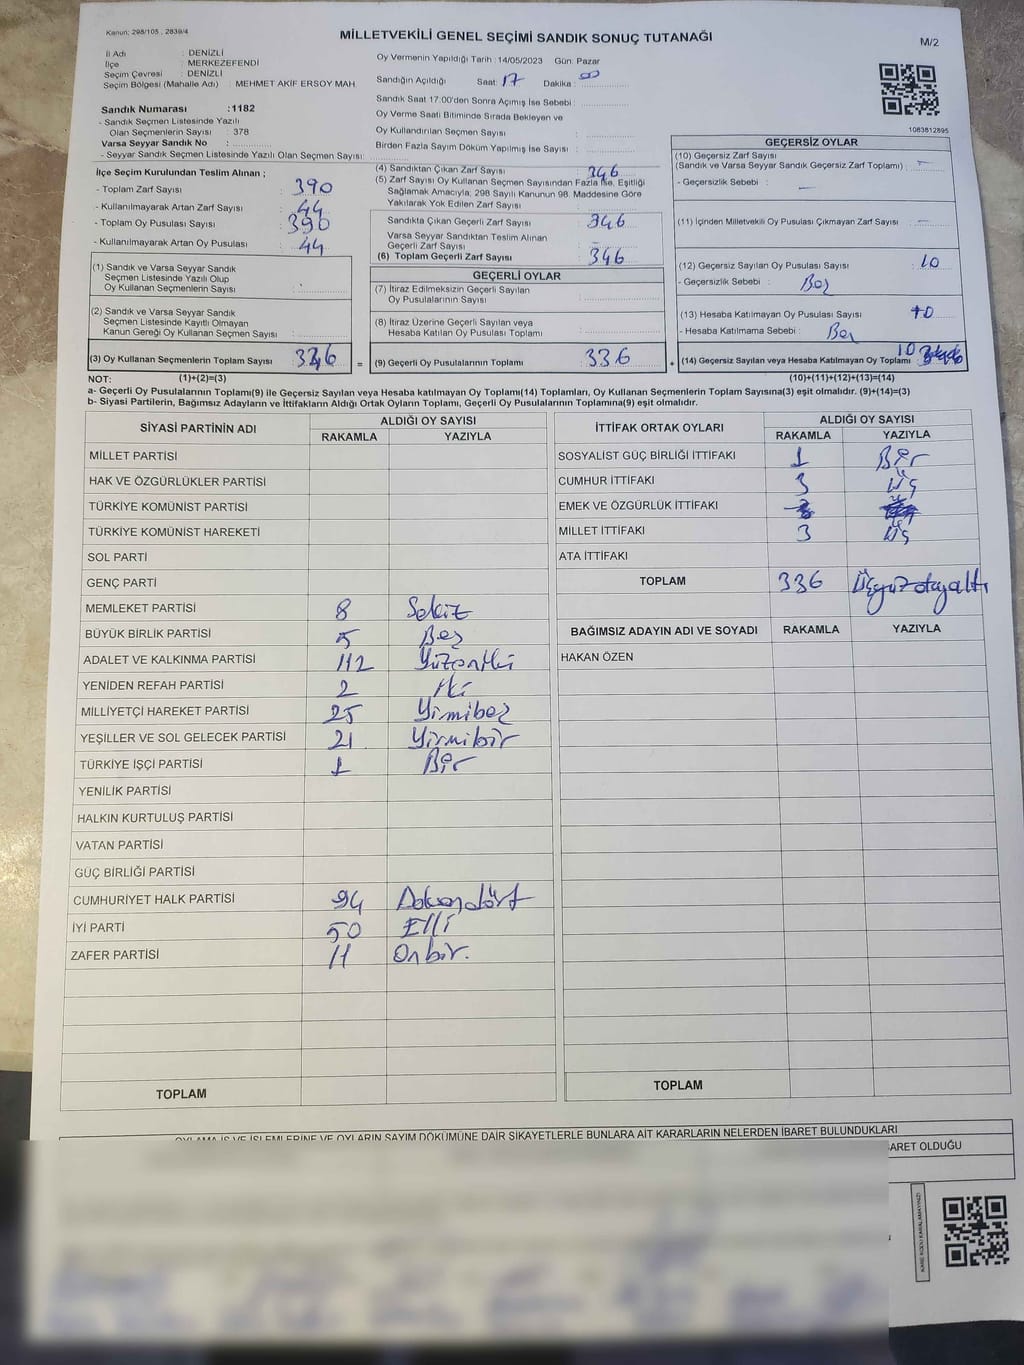 Kanun: 298/105 , 2839/4
MİLLETVEKİLİ GENEL SEÇİMİ SANDIK SONUÇ TUTANAĞI
M/2
İl Adı : DENİZLİ
İlçe : MERKEZEFENDİ
Seçim Çevresi : DENİZLİ
Seçim Bölgesi (Mahalle Adı) : MEHMET AKİF ERSOY MAH
Sandık Numarası :1182
- Sandık Seçmen Listesinde Yazılı
Olan Seçmenlerin Sayısı : 378
Varsa Seyyar Sandık No :
- Seyyar Sandık Seçmen Listesinde Yazılı Olan Seçmen Sayısı:
Oy Vermenin Yapıldığı Tarih : 14/05/2023 Gün: Pazar
Sandığın Açıldığı Saat: 17 Dakika : 00
Sandık Saat 17.00'den Sonra Açımış İse Sebebi :
Oy Verme Saati Bitiminde Sırada Bekleyen ve
Oy Kullandırılan Seçmen Sayısı :
Birden Fazla Sayım Döküm Yapılmış İse Sayısı :
1083812895
İlçe Seçim Kurulundan Teslim Alınan ;
- Toplam Zarf Sayısı : 390
- Kullanılmayarak Artan Zarf Sayısı : 44
- Toplam Oy Pusulası : 390
- Kullanılmayarak Artan Oy Pusulası : 44
(1) Sandık ve Varsa Seyyar Sandık
Seçmen Listesinde Yazılı Olup
Oy Kullanan Seçmenlerin Sayısı :
(2) Sandık ve Varsa Seyyar Sandık
Seçmen Listesinde Kayıtlı Olmayan
Kanun Gereği Oy Kullanan Seçmen Sayısı :
(3) Oy Kullanan Seçmenlerin Toplam Sayısı 346 =
(4) Sandıktan Çıkan Zarf Sayısı : 346
(5) Zarf Sayısı Oy Kullanan Seçmen Sayısından Fazla İse, Eşitliği
Sağlamak Amacıyla; 298 Sayılı Kanunun 98. Maddesine Göre
Yakılarak Yok Edilen Zarf Sayısı :
Sandıkta Çıkan Geçerli Zarf Sayısı : 346
Varsa Seyyar Sandıktan Teslim Alınan
Geçerli Zarf Sayısı : –
(6) Toplam Geçerli Zarf Sayısı : 346
GEÇERLİ OYLAR
(7) İtiraz Edilmeksizin Geçerli Sayılan
Oy Pusulalarının Sayısı :
(8) İtiraz Üzerine Geçerli Sayılan veya
Hesaba Katılan Oy Pusulası Toplamı :
(9) Geçerli Oy Pusulalarının Toplamı : 336 +
GEÇERSİZ OYLAR
(10) Geçersiz Zarf Sayısı
(Sandık ve Varsa Seyyar Sandık Geçersiz Zarf Toplamı) : –
- Geçersizlik Sebebi : –
(11) İçinden Milletvekili Oy Pusulası Çıkmayan Zarf Sayısı : –
(12) Geçersiz Sayılan Oy Pusulası Sayısı : 10
- Geçersizlik Sebebi :
(13) Hesaba Katılmayan Oy Pusulası Sayısı
- Hesaba Katılmama Sebebi :
(14) Geçersiz Sayılan veya Hesaba Katılmayan Oy Toplamı : 10
NOT: (1)+(2)=(3) (10)+(11)+(12)+(13)=(14)
a- Geçerli Oy Pusulalarının Toplamı(9) ile Geçersiz Sayılan veya Hesaba katılmayan Oy Toplamı(14) Toplamları, Oy Kullanan Seçmenlerin Toplam Sayısına(3) eşit olmalıdır. (9)+(14)=(3)
b- Siyasi Partilerin, Bağımsız Adayların ve İttifakların Aldığı Ortak Oyların Toplamı, Geçerli Oy Pusulalarının Toplamına(9) eşit olmalıdır.
SİYASİ PARTİNİN ADI ALDIĞI OY SAYISI
RAKAMLA YAZIYLA
MİLLET PARTİSİ
HAK VE ÖZGÜRLÜKLER PARTİSİ
TÜRKİYE KOMÜNİST PARTİSİ
TÜRKİYE KOMÜNİST HAREKETİ
SOL PARTİ
GENÇ PARTİ
MEMLEKET PARTİSİ 8 Sekiz
BÜYÜK BİRLİK PARTİSİ 5 Beş
ADALET VE KALKINMA PARTİSİ 112 Yüzoniki
YENİDEN REFAH PARTİSİ 2 İki
MİLLİYETÇİ HAREKET PARTİSİ 25 Yirmibeş
YEŞİLLER VE SOL GELECEK PARTİSİ 21 Yirmibir
TÜRKİYE İŞÇİ PARTİSİ 1 Bir
YENİLİK PARTİSİ
HALKIN KURTULUŞ PARTİSİ
VATAN PARTİSİ
GÜÇ BİRLİĞİ PARTİSİ
CUMHURİYET HALK PARTİSİ 94 Doksandört
İYİ PARTİ 50 Elli
ZAFER PARTİSİ 11 Onbir.
TOPLAM
İTTİFAK ORTAK OYLARI ALDIĞI OY SAYISI
RAKAMLA YAZIYLA
SOSYALİST GÜÇ BİRLİĞİ İTTİFAKI 1 Bir
CUMHUR İTTİFAKI 3 Üç
EMEK VE ÖZGÜRLÜK İTTİFAKI
MİLLET İTTİFAKI 3 Üç
ATA İTTİFAKI
TOPLAM 336 Üçyüzotuzaltı
BAĞIMSIZ ADAYIN ADI VE SOYADI RAKAMLA YAZIYLA
HAKAN ÖZEN
TOPLAM
OYLAMA İŞ VE İŞLEMLERİNE VE OYLARIN SAYIM DÖKÜMÜNE DAİR ŞİKAYETLERLE BUNLARA AİT KARARLARIN NELERDEN İBARET BULUNDUKLARI
BARET OLDUĞU
KARE KODU KARALAMAYINIZ!